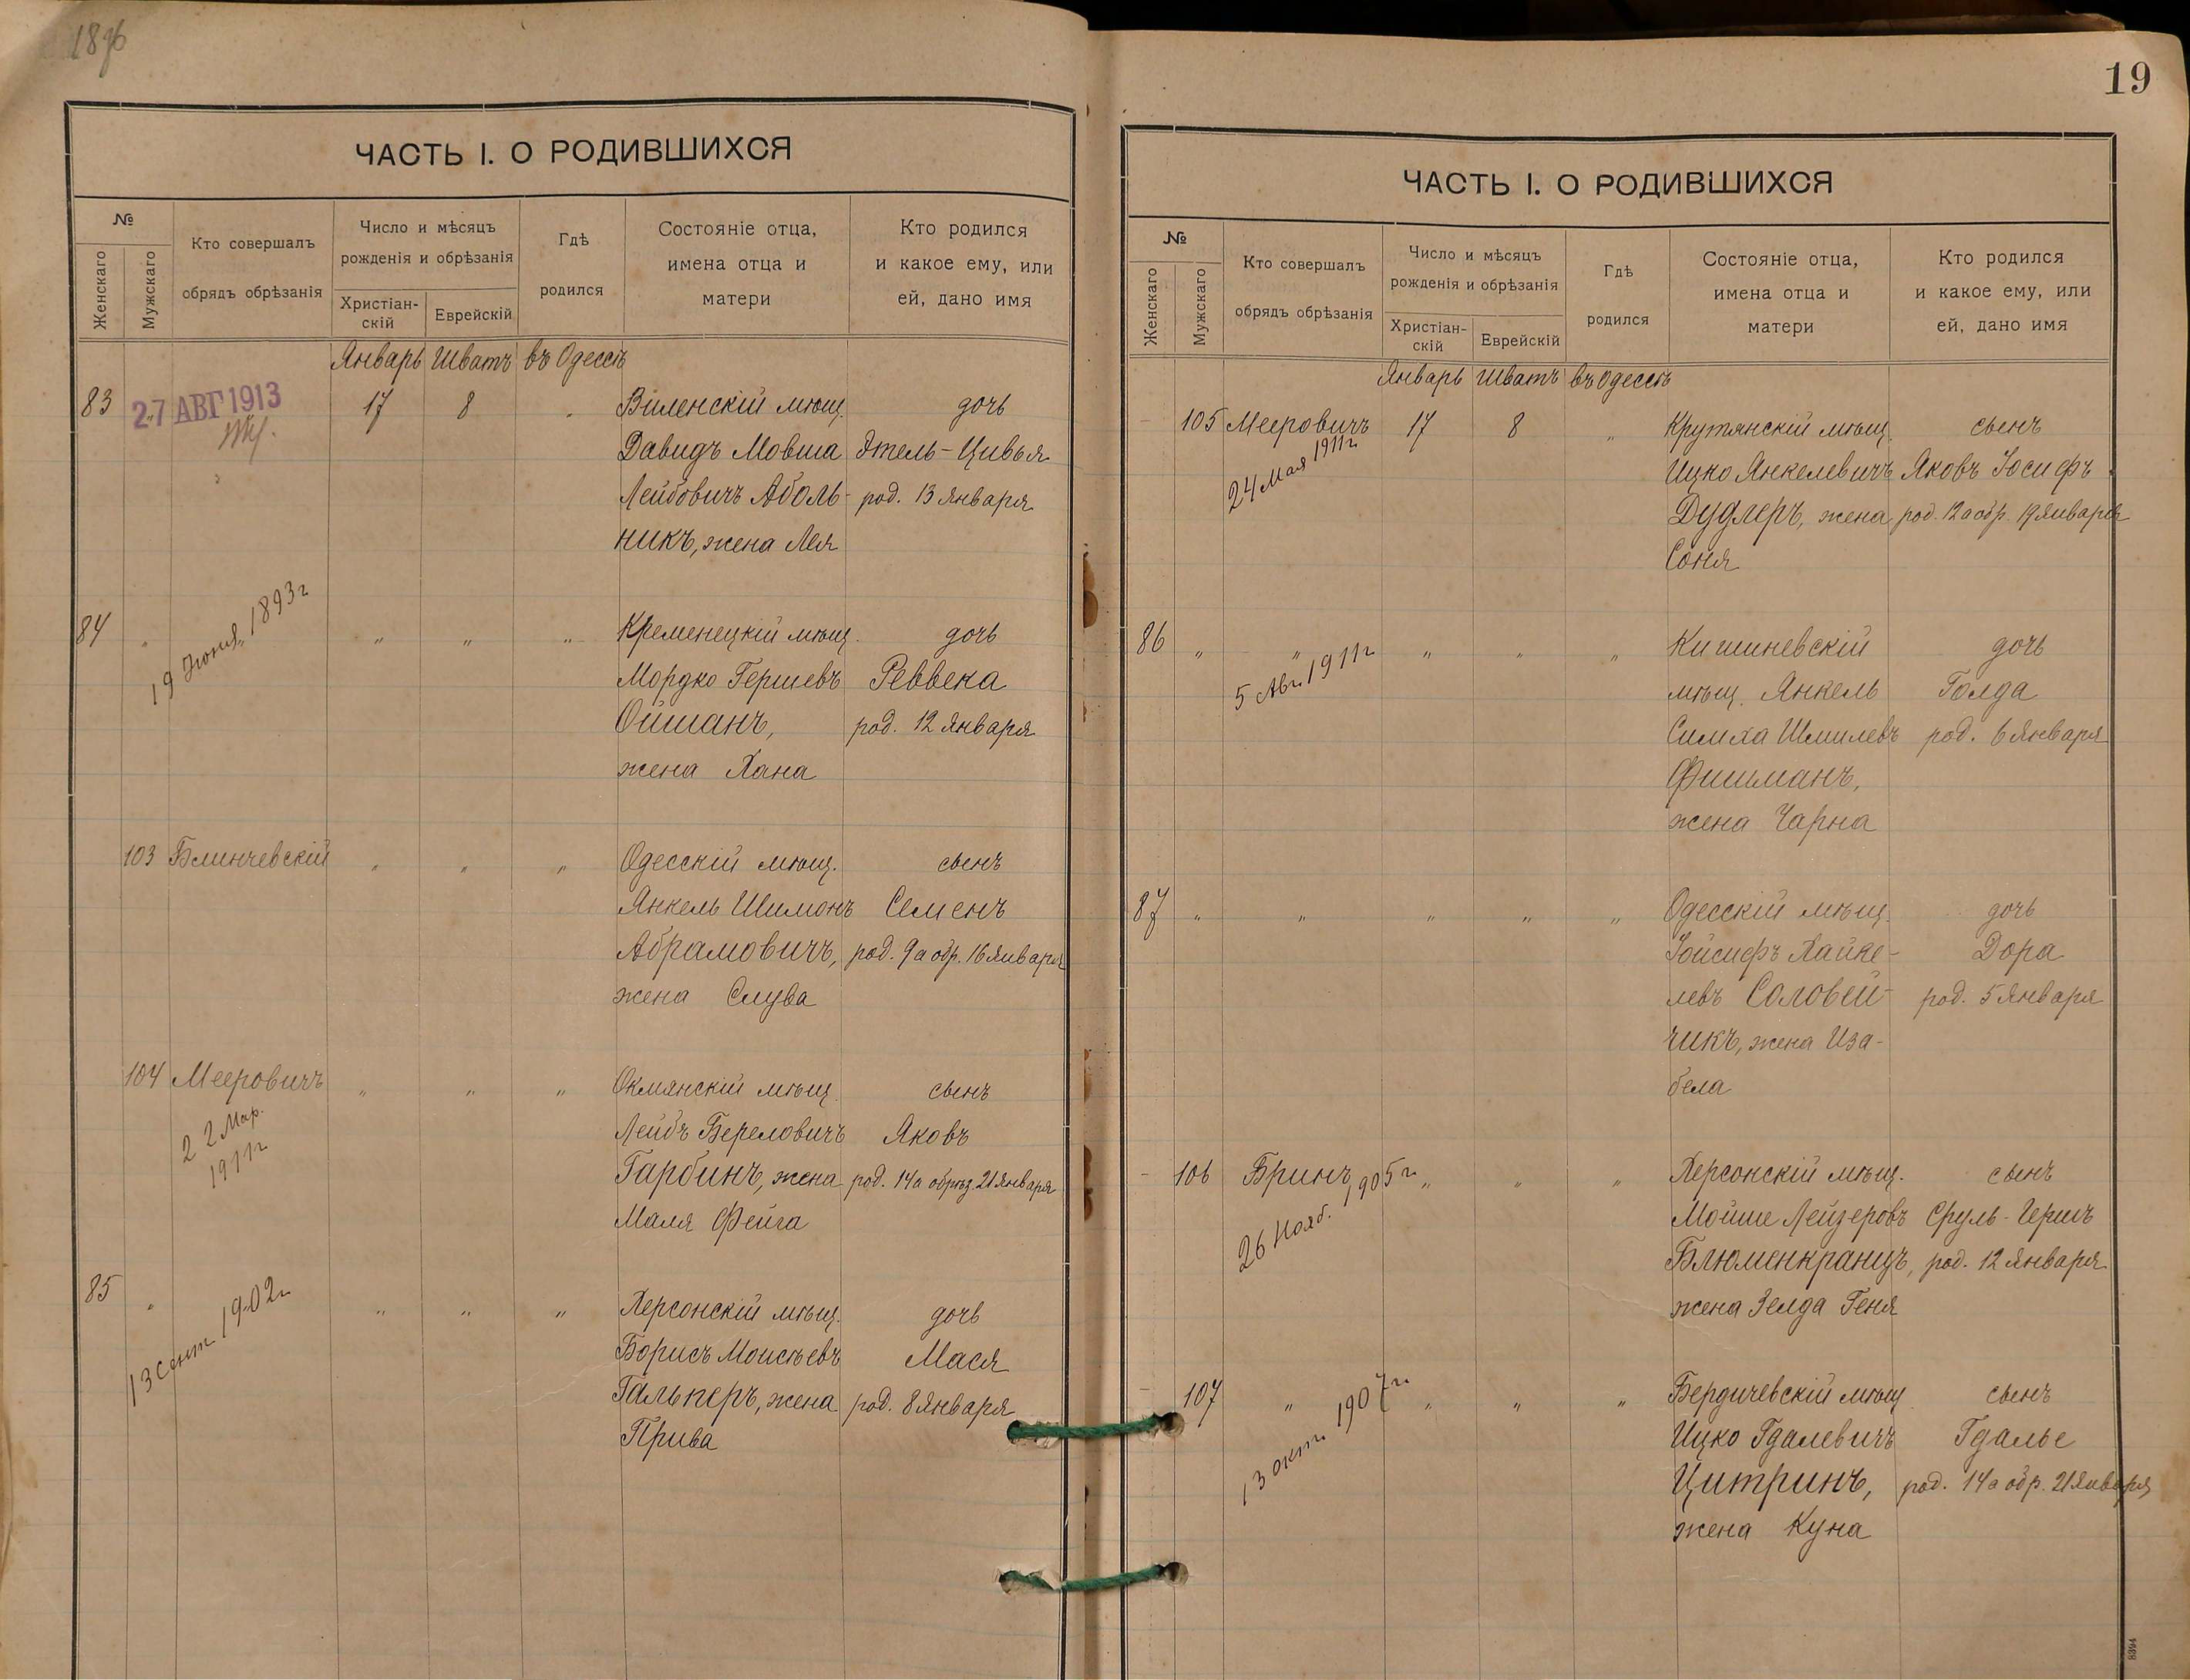 1896
ЧАСТЬ I. О РОДИВШИХСЯ
№
Женскаго
Мужскаго
Кто совершалъ
обрядъ обрѣзанія
Число и мѣсяцъ
рожденія и обрѣзанія
Христіан-
скій
Еврейскій
Гдѣ
родился
Состояніе отца,
имена отца и
матери
Кто родился
и какое ему, или
ей, дано имя
Январь Шватъ въ Одессѣ
83 27 АВГ 1913 17 8 " Виленскій мѣщ. дочь
Давидъ Мовша Этель-Цивья
Лейбовичъ Аболь- род. 13 Января
никъ, жена Лея
84 " 19 Іюня 1893 г " " " Кременецкій мѣщ. дочь
Мордко Гершевъ Реввека
Ойшанъ, род. 12 Января
жена Хана
103 Блинчевскій " " " Одесскій мѣщ. сынъ
Янкель Шимонъ Семенъ
Абрамовичъ, род. 9 а обр. 16 Января
жена Слува
104 Мееровичъ " " " Окмянскій мѣщ. сынъ
22 Мар.
1911 г
Лейбъ Береловичъ Яковъ
Гарбинъ, жена род. 14 а обрѣз. 21 Января
Маля Фейга
85 " 13 Сент 1902 г " " " Херсонскій мѣщ. дочь
Борисъ Моисѣевъ Мася
Гальперъ, жена род. 8 Января
Прива
19
ЧАСТЬ I. О РОДИВШИХСЯ
№
Женскаго
Мужскаго
Кто совершалъ
обрядъ обрѣзанія
Число и мѣсяцъ
рожденія и обрѣзанія
Христіан-
скій
Еврейскій
Гдѣ
родился
Состояніе отца,
имена отца и
матери
Кто родился
и какое ему, или
ей, дано имя
Январь Шватъ въ Одессѣ
105 Мееровичъ 17 8 " Крутянскій мѣщ. сынъ
24 Мая 1911 г
Ицко Янкелевичъ Яковъ Іосифъ
Дудлеръ, жена род. 12 а обр. 19 Января
Соня
86 " " " " " Кишиневскій дочь
5 Авг. 1911 г
мѣщ. Янкель Голда
Симха Шмилевъ род. 6 Января
Фишманъ,
жена Чарна
87 " " " " " Одесскій мѣщ. дочь
Іойсифъ Хайке- Дора
левъ Соловей- род. 5 Января
чикъ, жена Иза-
бела
106 Бринъ " " " Херсонскій мѣщ. сынъ
26 Нояб. 1905 г
Мойше Лейзеровъ Сруль-Гершъ
Блюменкранцъ, род. 12 Января
жена Зелда Геня
107 " " " " Бердичевскій мѣщ сынъ
13 окт. 1907 г.
Ицко Гдалевичъ Гдалье
Цитринъ, род. 14 а обр. 21 Января
жена Куна
8394